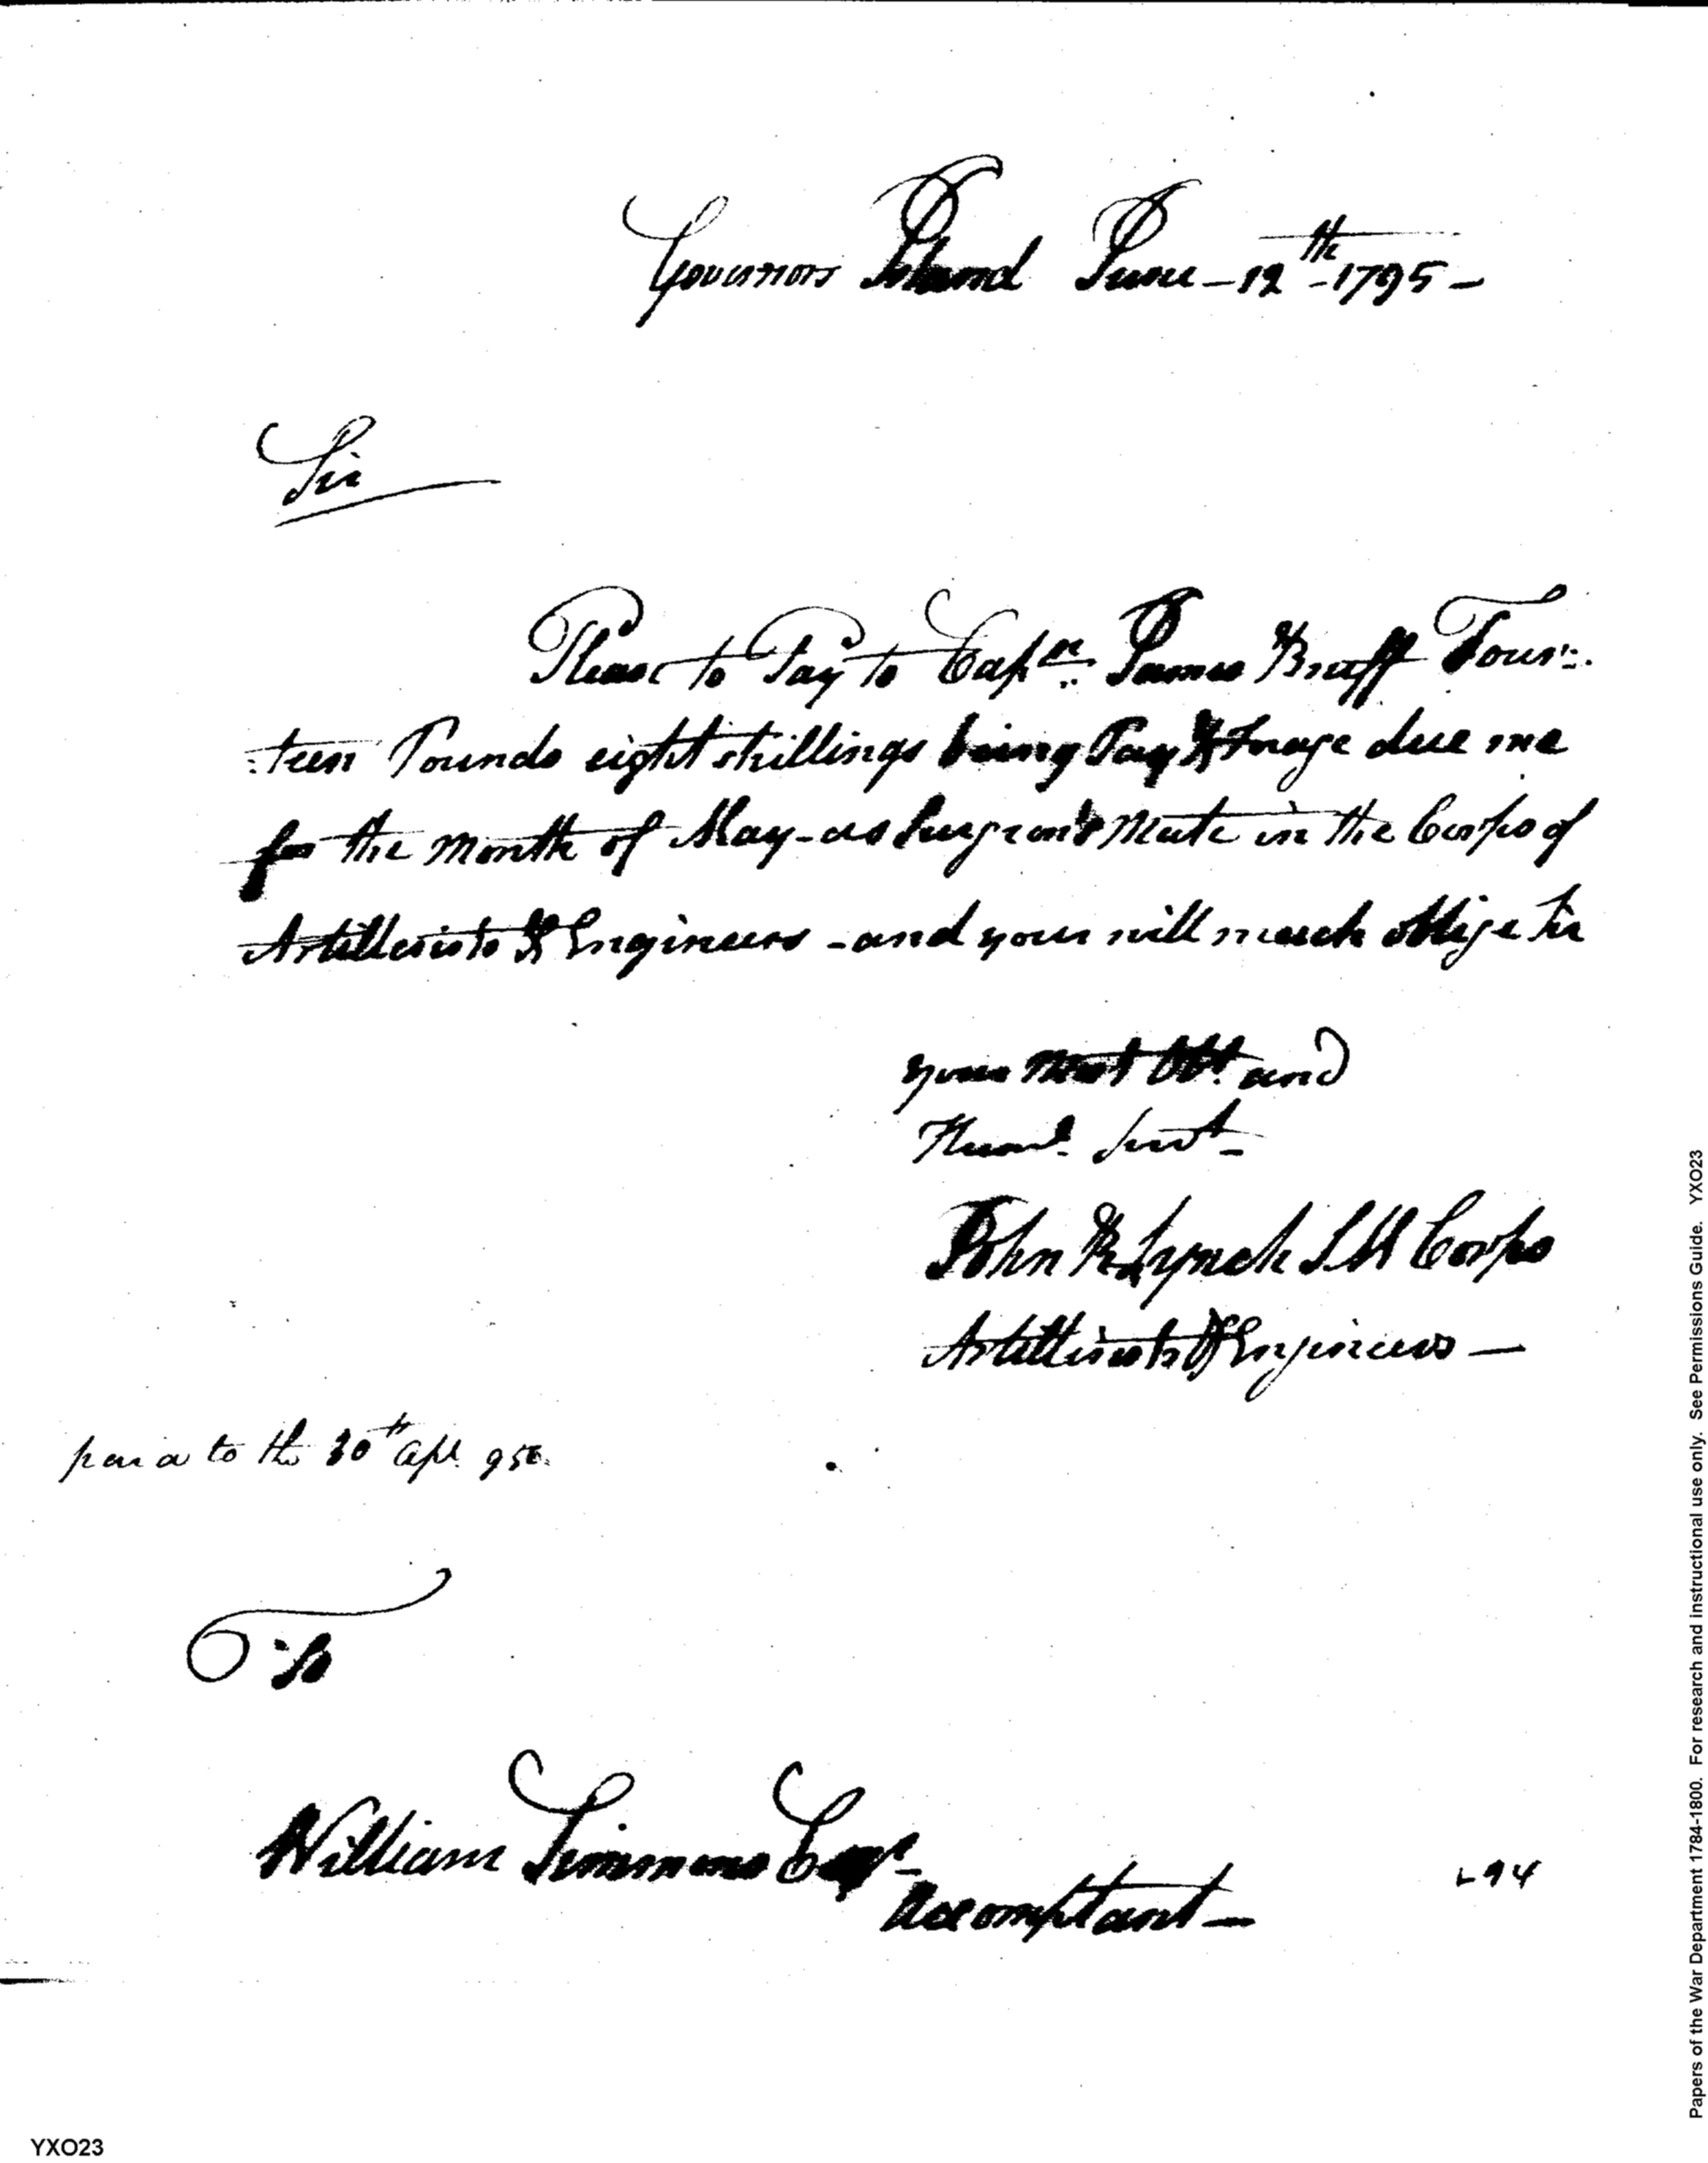 Governors Island June - 12th - 1795 -
Sir
Please to Pay to Captn. James Bruff Four:
:teen Pounds eight shillings being Pay & Forage due me
for the month of May - as Surgeon's Mate in the Corps of
Artillerists & Engineers - and your will much oblige Sir
your most Obt. and
Huml. Servt -
John R Lynch S M Corps
Artillerists & Engineers -
paid to the 30th apl. 95
To
William Simmons Esqr -
Accomptant -
94
YXO23
Papers of the War Department 1784-1800. For research and instructional use only. See Permissions Guide. YXO23